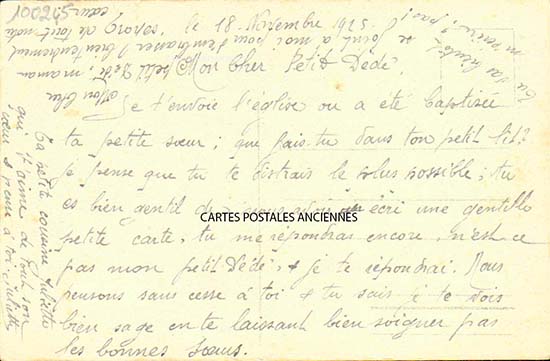 100245
Groses, le 18 Novembre 1925.
Mon Cher Petit Dédé,
Je t'envoie l'église ou a été baptisée
ta petite sœur ; que fais-tu dans ton petit lit?
je pense que tu te distrais le plus possible ; tu
es bien gentil de écri une gentille
petite carte, tu me répondras encore, n'est ce
pas mon petit Dédé, & je te répondrai. Nous
pensons sans cesse à toi & tu sais je te dois
bien sage en te laissant bien soigner pas
les bonnes sœurs.
CARTES POSTALES ANCIENNES
Ta petite cousine Juliette
qui t'aime de tout son
cœur & pense à toi. Juliette
Mon Cher petit Dédé, maman
se joint à moi pour t'embrasser bien tendrement
de tout notre
cœur